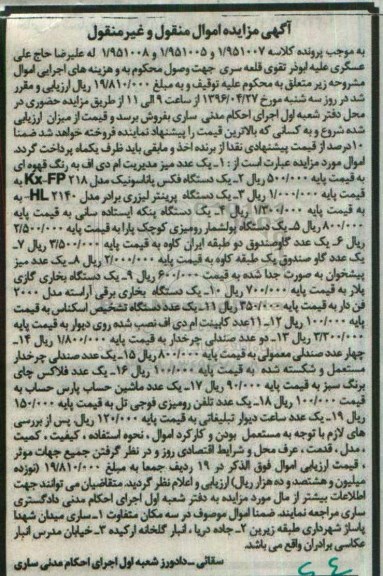 آگهی مزایده اموال منقول و غیر منقول
به موجب پرونده کلاسه ۱/۹۵۱۰۰۷ و ۱/۹۵۱۰۰۵ و ۱/۹۵۱۰۰۸ له علیرضا حاج علی
عسگری علیه ابوذر تقوی قلعه سری جهت وصول محکوم به و هزینه های اجرایی اموال
مشروحه زیر متعلق به محکوم علیه توقیف و به مبلغ ۱۹/۸۱۰/۰۰۰ ریال ارزیابی و مقرر
شد در روز سه شنبه مورخ ۱۳۹۶/۰۴/۲۷ از ساعت ۹ الی ۱۱ از طریق مزایده حضوری در
محل دفتر شعبه اول اجرای احکام مدنی ساری بفروش برسد و قیمت از میزان ارزیابی
شده شروع و به کسانی که بالاترین قیمت را پیشنهاد نماینده فروخته خواهد شد ضمنا
۱۰درصد از قیمت پیشنهادی نقدا از برنده اخذ و مابقی باید ظرف یکماه پرداخت گردد.
اموال مورد مزایده عبارت است از: ۱- یک عدد میز مدیریت ام دی اف به رنگ قهوه ای
به قیمت پایه ۵۰۰/۰۰۰ ریال ۲- یک دستگاه فکس پاناسونیک مدل Kx-FP ۲۱۸ به
قیمت پایه ۱/۰۰۰/۰۰۰ ریال ۳- یک دستگاه پرینتر لیزری برادر مدل ۲۱۴۰ HL- به
به قیمت پایه ۱/۳۰۰/۰۰۰ ریال ۴- یک دستگاه پنکه ایستاده سانی به قیمت پایه
۸۰۰/۰۰۰ ریال ۵- یک دستگاه پولشمار رومیزی کوچک پارا به قیمت پایه ۲/۵۰۰/۰۰۰
ریال ۶- یک عدد گاوصندوق دو طبقه ایران کاوه به قیمت پایه ۳/۵۰۰/۰۰۰ ریال ۷-
یک عدد گاو صندوق یک طبقه کاوه به قیمت پایه ۲/۰۰۰/۰۰۰ ریال ۸- یک عدد میز
پیشخوان به صورت جدا شده به قیمت ۶۰۰/۰۰۰ ریال ۹- یک دستگاه بخاری گازی
پلار به قیمت پایه ۷۰۰/۰۰۰ ریال ۱۰- یک دستگاه بخاری برقی آراسته مدل ۲۰۰۰
فن دار به قیمت پایه ۳۵۰/۰۰۰ ریال ۱۱- یک عدد دستگاه تشخیص اسکناس به قیمت
پایه ۱۰۰/۰۰۰ ریال ۱۲- ۱۱عدد کابینت ام دی اف نصب شده روی دیوار به قیمت پایه
۳/۳۰۰/۰۰۰ ریال ۱۳- دو عدد صندلی چرخدار به قیمت پایه ۱/۸۰۰/۰۰۰ ریال ۱۴-
چهار عدد صندلی معمولی به قیمت پایه ۸۰۰/۰۰۰ ریال ۱۵- یک عدد صندلی چرخدار
مستعمل و شکسته شده به قیمت پایه ۱۰۰/۰۰۰ ریال ۱۶- یک عدد فلاکس چای
برنگ سبز به قیمت پایه ۹۰/۰۰۰ ریال ۱۷- یک عدد ماشین حساب پارس حساب به
قیمت ۱۰۰/۰۰۰ ریال ۱۸- یک عدد تلفن رومیزی فوجی تل به قیمت پایه ۱۵۰/۰۰۰
ریال ۱۹- یک عدد ساعت دیوار تبلیغاتی به قیمت پایه ۱۲۰/۰۰۰ ریال. پس از بررسی
های لازم با توجه به مستعمل بودن و کارکرد اموال ، نحوه استفاده ، کیفیت ، کمیت
، مدل ، قدمت ، عرف محل و شرایط اقتصادی روز و در نظر گرفتن جمیع جهات موثر
، قیمت ارزیابی اموال فوق الذکر در ۱۹ ردیف جمعا به مبلغ ۱۹/۸۱۰/۰۰۰ (نوزده
میلیون و هشتصد و ده هزار ریال) ارزیابی و اعلام نظر گردید. متقاضیان می توانند جهت
اطلاعات بیشتر از مال مورد مزایده به دفتر شعبه اول اجرای احکام مدنی دادگستری
ساری مراجعه نمایند. ضمنا اموال موصوف در سه مکان متفاوت ۱- ساری میدان شهدا
پاساژ شهرداری طبقه زیرین ۲- جاده دریا ، انبار گلخانه ارکیده ۳- خیابان مدرس انبار
عکاسی برادران واقع می باشد.
سقائی - دادورز شعبه اول اجرای احکام مدنی ساری